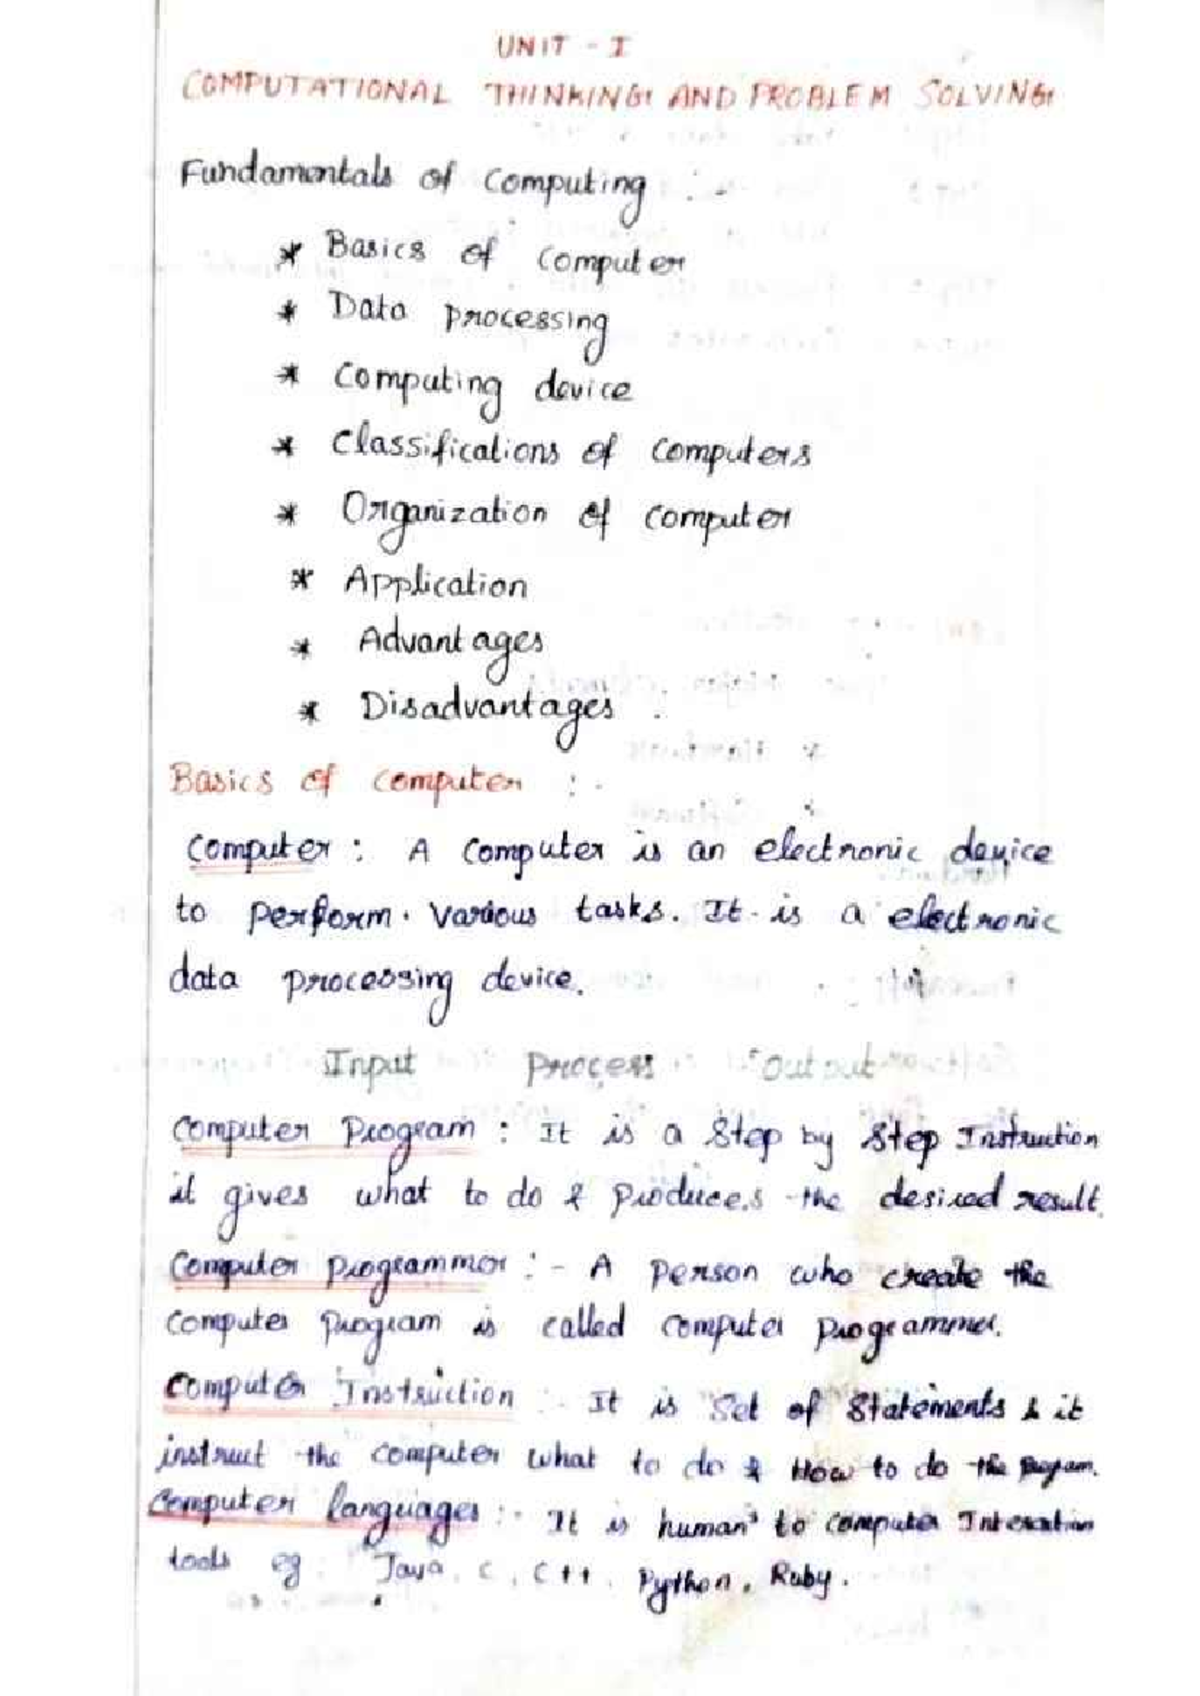 UNIT - I
COMPUTATIONAL THINKING AND PROBLEM SOLVING
Fundamentals of Computing :-
* Basics of Computer
* Data processing
* Computing device
* Classifications of Computers
* Organization of Computer
* Application
* Advantages
* Disadvantages.
Basics of Computer :-
Computer : A Computer is an electronic device
to perform various tasks. It is a electronic
data processing device.
Input Process Output
Computer Program : It is a Step by Step Instruction
it gives what to do & Produces the desired result.
Computer programmer :- A Person who create the
Computer Program is called Computer Programmer.
Computer Instruction :- It is Set of Statements & it
instruct the computer what to do & How to do the Program.
Computer languages :- It is human to computer Interaction
tools eg : Java, C, C++, Python, Ruby.